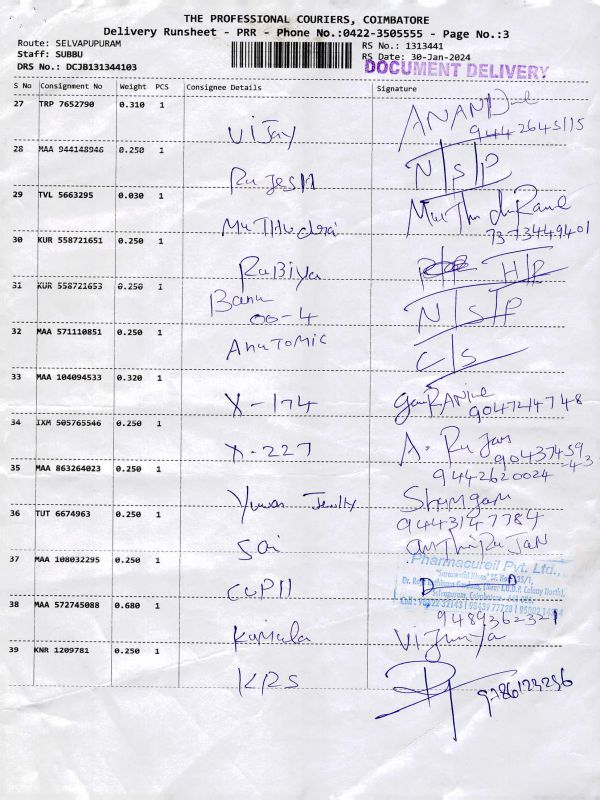 THE PROFESSIONAL COURIERS, COIMBATORE
Delivery Runsheet - PRR - Phone No.:0422-3505555 - Page No.:3
Route: SELVAPUPURAM
RS No.: 1313441
Staff: SUBBU
RS Date: 30-Jan-2024
DRS No.: DCJB131344103
DOCUMENT DELIVERY
S No Consignment No Weight PCS Consignee Details Signature
27 TRP 7652790 0.310 1
Vijay ANAND
9442645115
28 MAA 944148946 0.250 1
RajesH N/S/P
29 TVL 5663295 0.030 1
7373449401
30 KUR 558721651 0.250 1
RuBiya H/R
31 KUR 558721653 0.250 1
Banu
00-4 N/S/P
32 MAA 571110851 0.250 1
AnaTomic C/S
33 MAA 104094533 0.320 1
X-174
9047214748
34 IXM 505765546 0.250 1
X-227 A. Rajan
35 MAA 863264023 0.250 1
9442620024
9443147784
36 TUT 6674963 0.250 1
Sai
Pharmacureil Pvt. Ltd.,
37 MAA 108032295 0.250 1
38 MAA 572745088 0.680 1
9489362321
Kamala
39 KNR 1209781 0.250 1
KRS
9786123236